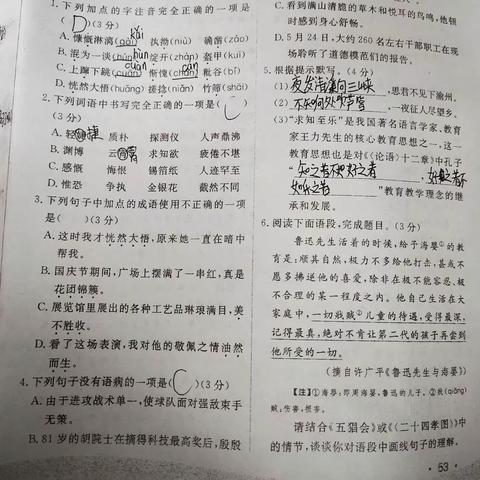 1. 下列加点的字注音完全正确的一项是
( D )(3分)
A. 慷慨淋漓(gǎi) 执拗(niù) 确凿(záo)
kǎi
B. 混为一谈(hǔn) 绽开(zhàn) 盔甲(kuī)
hùn
C. 上蹿下跳(cuàn) 惭愧(cán) 秕谷(bǐ)
cuān
D. 恍然大悟(huǎng) 搓捻(niǎn) 竹筛(shāi)
2. 下列词语中书写完全正确的一项是( C )
(3分)
A. 轻捷 质朴 探测仪 人声鼎沸
B. 渊博 云霄 求知欲 疲倦不堪
C. 感慨 悔恨 锡箔纸 人迹罕至
D. 惟恐 争执 金银花 截然不同
3. 下列句子中加点的成语使用不正确的一项
是( )(3分)
A. 这时我才恍然大悟,原来她一直在暗中
帮我。
B. 国庆节期间,广场上摆满了一串红,真是
花团锦簇。
C. 展览馆里展出的各种工艺品琳琅满目,美
不胜收。
D. 看了这场表演,我对他的敬佩之情油然
而生。
4. 下列句子没有语病的一项是( C )(3分)
A. 由于进攻战术单一,使球队面对强敌束手
无策。
B. 81 岁的胡院士在摘得科技最高奖后,殷殷
C. 看到满山清脆的草木和悦耳的鸟鸣,他顿
时感到身心舒畅。
D. 5 月 24 日,大约 260 名左右干部职工在现
场聆听了道德模范们的报告。
5. 根据提示默写。(4分)
(1) 夜发清溪向三峡 ,思君不见下渝州。
(2) 不知何处吹芦管 ,一夜征人尽望乡。
(3) “求知至乐”是我国著名语言学家、教育
家王力先生的核心教育思想之一,这一
教育思想也是对《〈论语〉十二章》中孔子
“ 知之者不如好之者 , 好之者不
如乐之者 ”教育教学理念的继
承和发展。
6. 阅读下面语段,完成题目。(3分)
鲁迅先生活着的时候,给予海婴①的教
育是:顺其自然,极力不多给他打击,甚或不
愿多拂逆他的喜爱,除非在极不能容忍,极
不合理的某一程度之内。他自己生活在大
家庭中,一切戕贼②儿童的待遇,受得最深,
记得最真,绝对不肯让第二代的孩子再尝到
他所受的一切。
(摘自许广平《鲁迅先生与海婴》)
【注】①海婴:即周海婴,鲁迅的儿子。②戕(qiāng)
贼:伤害,损害。
请结合《五猖会》或《〈二十四孝图〉》中
的情节,谈谈你对语段中画线句子的理解。
· 53 ·